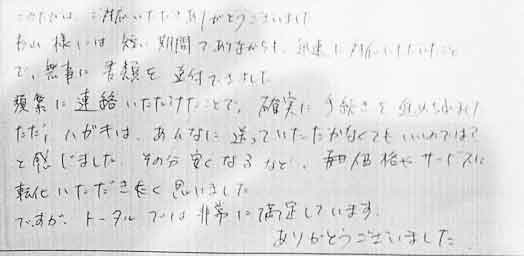 このたびは、ご対応いただきありがとうございました
様には 短い期間でありながらも、迅速に対応いただいたこと
で、無事に書類を送付できました
頻繁に連絡いただけたことで、確実に手続きを進められました
ただ、ハガキは、あんなに送っていただかなくてもいいのでは?
と感じました その分安くなるなど、価格やサービスに
転化いただきたく思いました
ですが、トータルでは非常に満足しています。
ありがとうございました